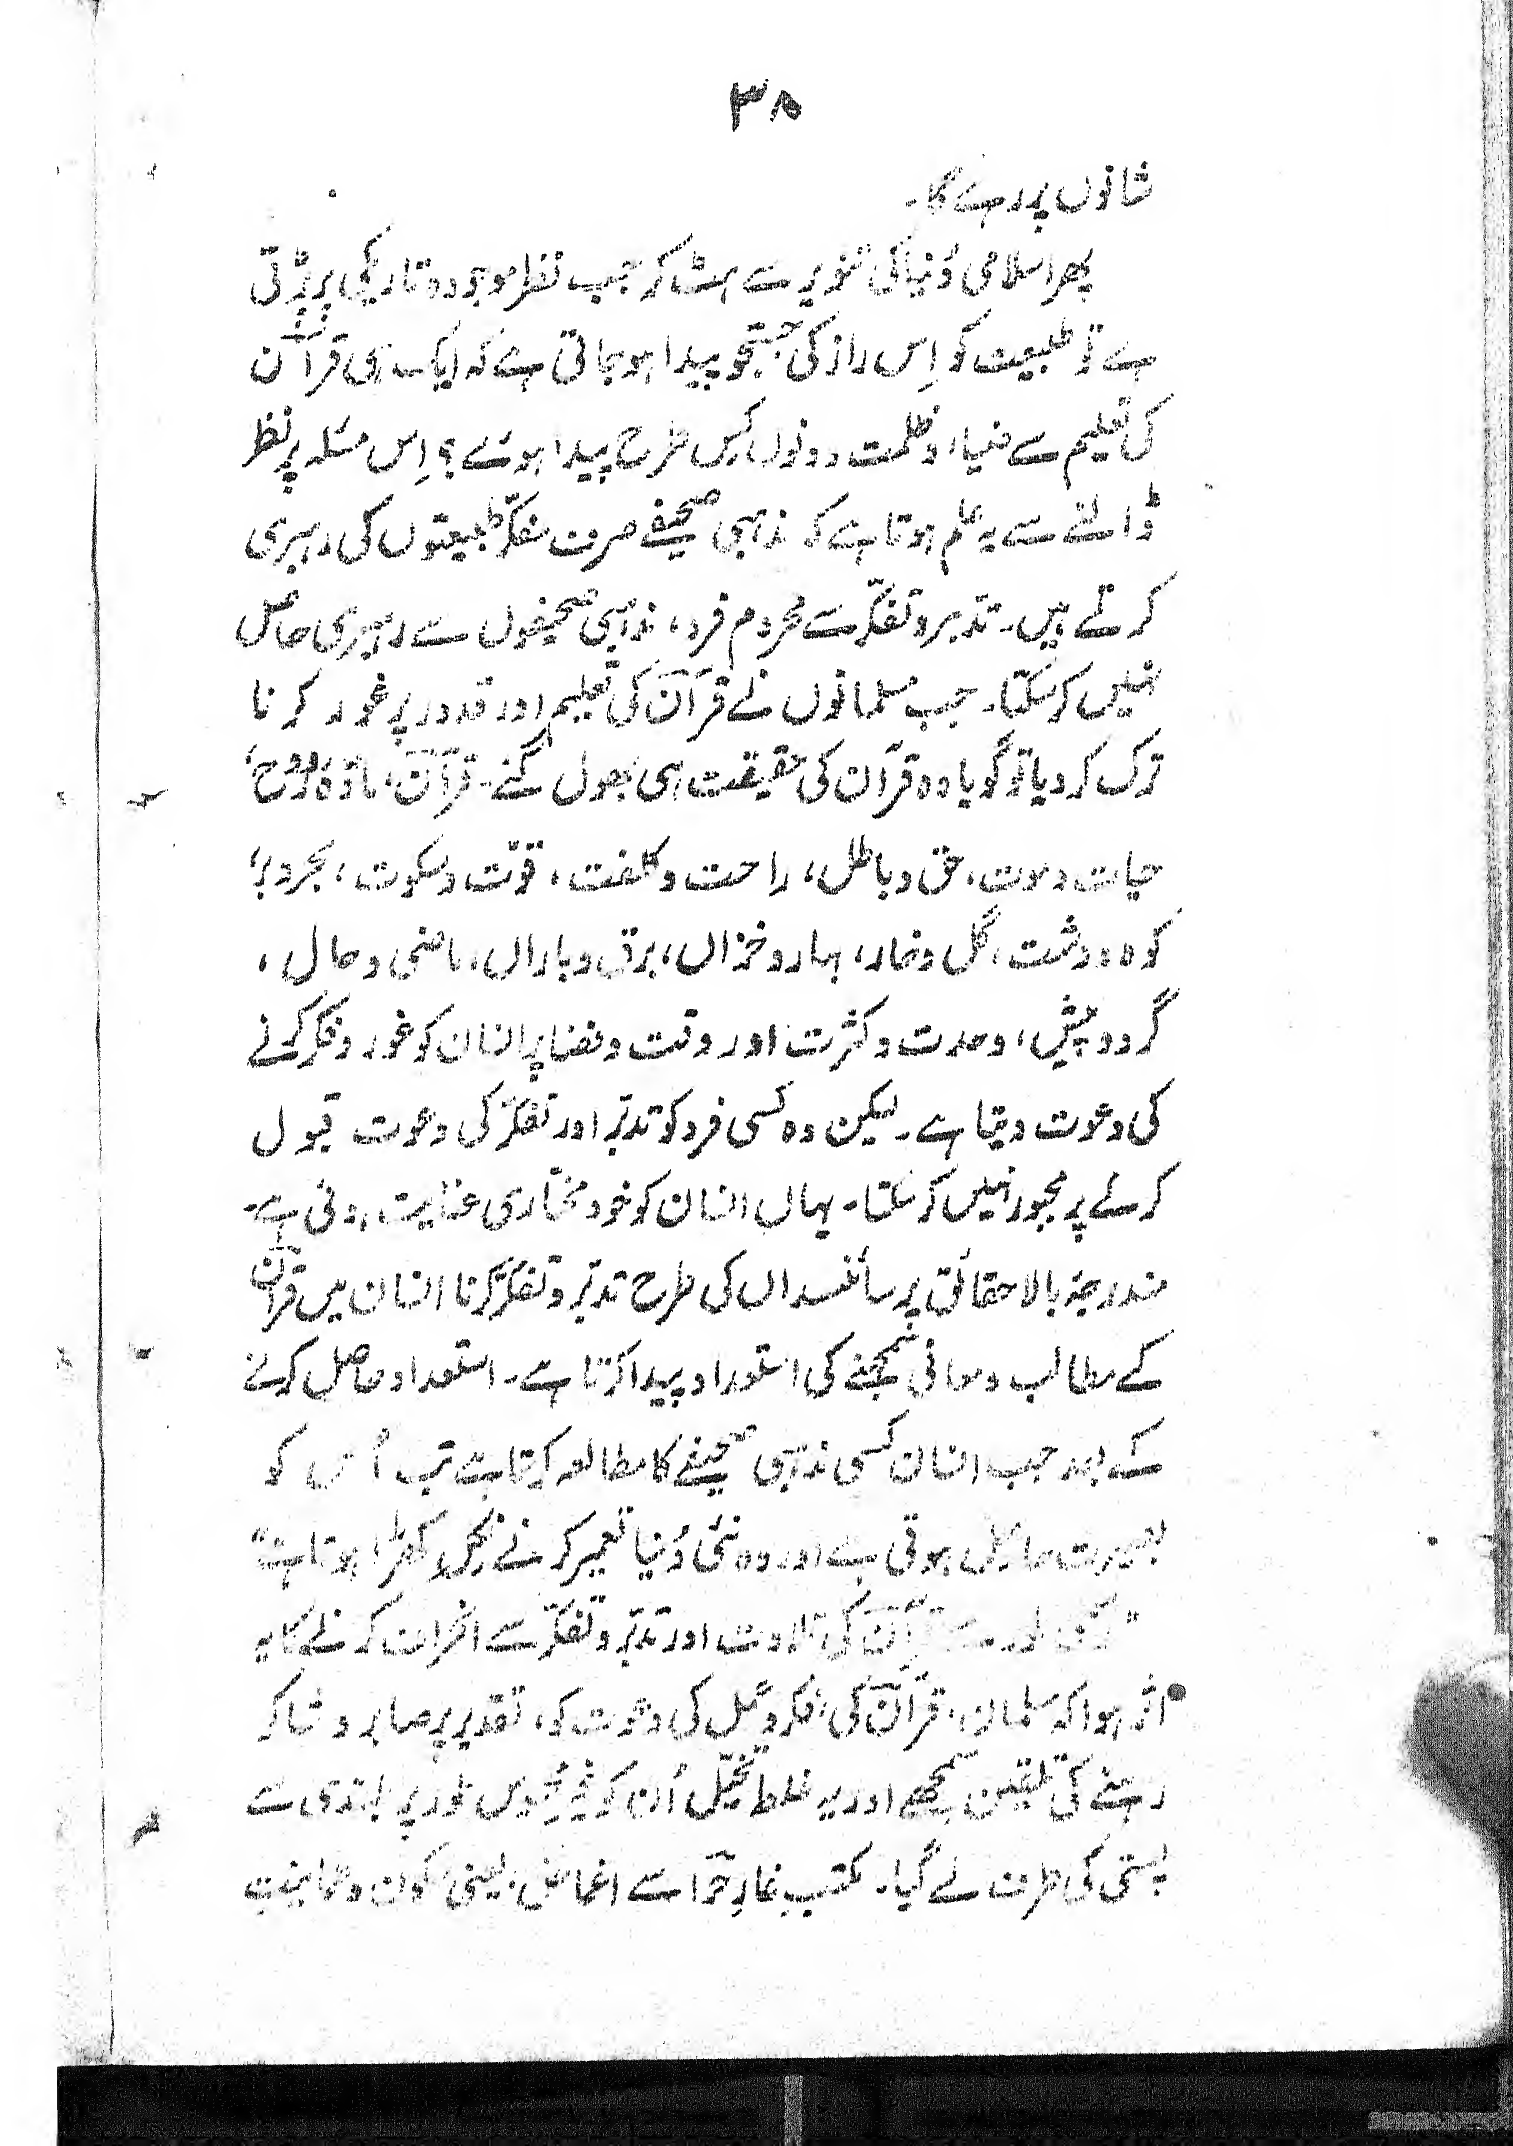 ۳۸
شانوں پر رہے گا۔
پھر اسلامی دُنیا کی تنویر سے ہٹ کر جب نظر موجودہ تاریکی پر پڑتی
ہے تو طبیعت کو اِس راز کی جستجو پیدا ہو جاتی ہے کہ ایک ہی قرآن
کی تعلیم سے ضیاء و ظلمت دونوں کس طرح پیدا ہوئے؟ اِس مسئلہ پر نظر
ڈالنے سے یہ علم ہوتا ہے کہ مذہبی صحیفے صرف مفکّر طبیعتوں کی رہبری
کرتے ہیں۔ تدبر و تفکّر سے محروم فرد، مذہبی صحیفوں سے رہبری حاصل
نہیں کر سکتا۔ جب مسلمانوں نے قرآن کی تعلیم اور قدور پر غور کرنا
ترک کر دیا تو گویا وہ قرآن کی حقیقت ہی بھول گئے۔ قرآن، مادّہ و روح،
حیات و موت، حق و باطل، راحت و کلفت، قوّت و سکوت، بحر و بر،
کوہ و دشت، گل و خار، بہار و خزاں، برق و باراں، ماضی و حال،
گرد و پیش، وحدت و کثرت اور وقت و فضا پر انسان کو غور و فکر کرنے
کی دعوت دیتا ہے۔ لیکن وہ کسی فرد کو تدبّر اور تفکّر کی دعوت قبول
کرنے پر مجبور نہیں کر سکتا۔ یہاں انسان کو خود مختاری عنایت ہوئی ہے۔
مندرجۂ بالا حقائق پر سائنسداں کی طرح تدبّر و تفکّر کرنا انسان میں قرآن
کے مطالب و معانی سمجھنے کی استعداد پیدا کرتا ہے۔ استعداد حاصل کرنے
کے بعد جب انسان کسی مذہبی صحیفے کا مطالعہ کرتا ہے تب اُس کو
بصیرت حاصل ہوتی ہے اور وہ نئی دُنیا تعمیر کرنے نکل کھڑا ہوتا ہے"
" طور سے قرآن کی تلاوت اور تدبّر و تفکّر سے انحراف کرنے کا یہ
اثر ہوا کہ مسلمان، قرآن کی فکر و عمل کی دعوت کو، تقدیر پر صابر و شاکر
رہنے کی تلقین سمجھے اور یہ غلط تخیّل اُن کو غیر محسوس طور پر بلندی سے
پستی کی طرف لے گیا۔ مکتبِ غارِ حرا سے اغماض، یعنی سکون و